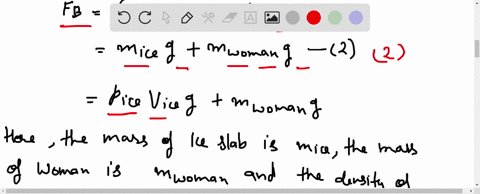 FB =
= mice g + mwoman g — (2) (2)
= ρice Vice g + mwoman g
Here, the mass of Ice slab is mice, the mass
of woman is mwoman and the density of